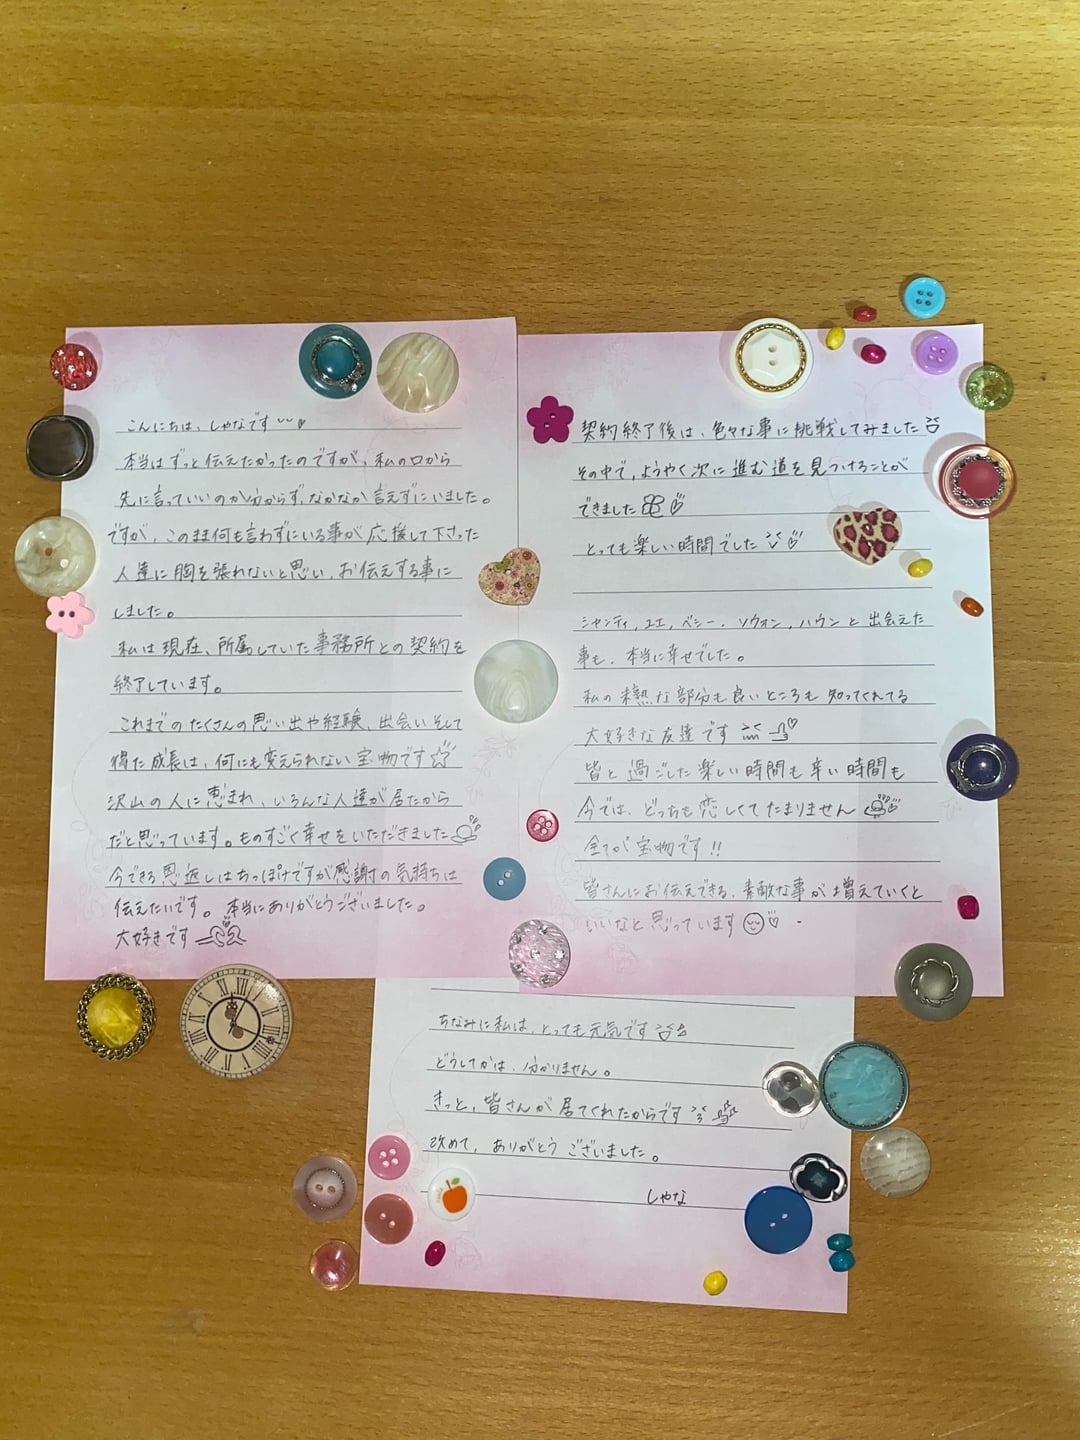 こんにちは、しゃなです
本当はずっと伝えたかったのですが、私の口から
先に言っていいのか分からず、なかなか言えずにいました。
ですが、このまま何も言わずにいる事が応援して下さった
人達に胸を張れないと思い、お伝えする事に
しました。
私は現在、所属していた事務所との契約を
終了しています。
これまでのたくさんの思い出や経験、出会いそして
得た成長は、何にも変えられない宝物です
沢山の人に恵まれ、いろんな人達が居たから
だと思っています。ものすごく幸せをいただきました
今できる恩返しはちっぽけですが感謝の気持ちは
伝えたいです。本当にありがとうございました。
大好きです
契約終了後は、色々な事に挑戦してみました
その中で、ようやく次に進む道を見つけることが
できました
とっても楽しい時間でした
シャンティ、ユエ、ベシー、ソウォン、ハウンと出会えた
事も、本当に幸せでした。
私の未熟な部分も良いところも知ってくれてる
大好きな友達です
皆と過ごした楽しい時間も辛い時間も
今では、どっちも恋しくてたまりません
全てが宝物です!!
皆さんにお伝えできる、素敵な事が増えていくと
いいなと思っています
ちなみに私は、とっても元気です
どうしてかは、分かりません。
きっと、皆さんが居てくれたからです
改めて、ありがとうございました。
しゃな